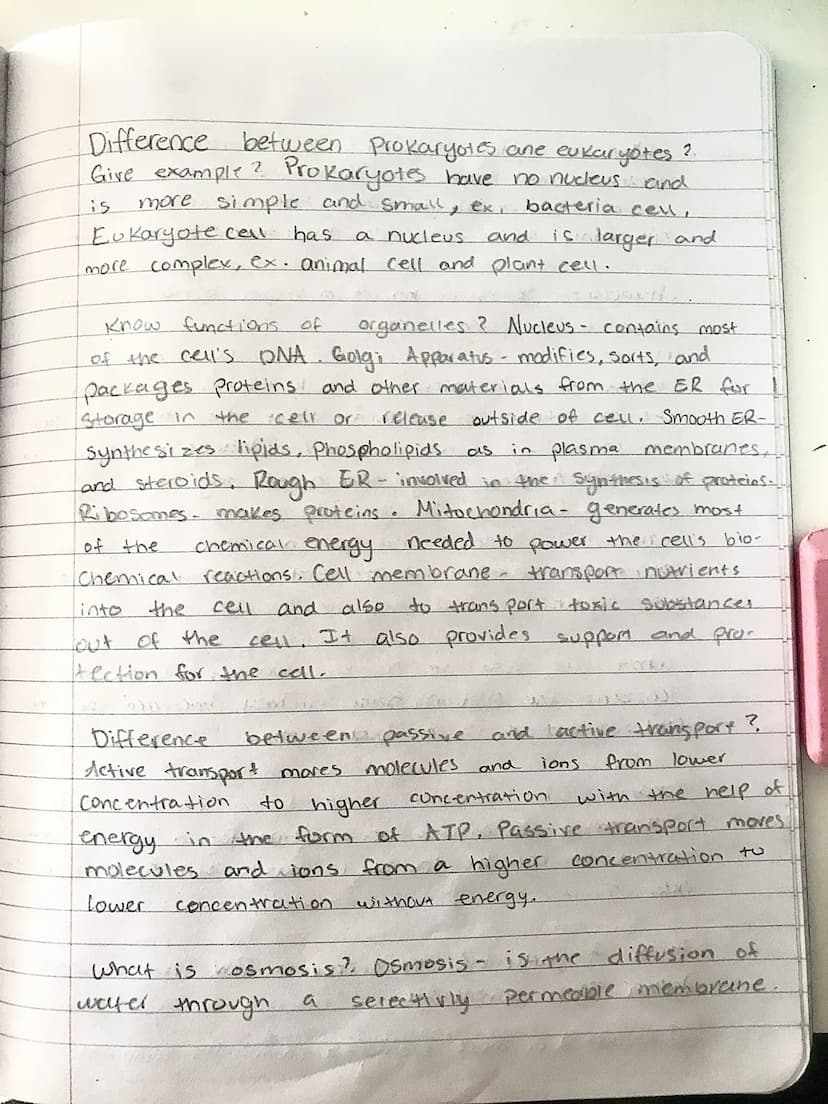 Difference between Prokaryotes ane eukaryotes?
Give example? Prokaryotes have no nucleus and
is more simple and small, ex. bacteria cell.
Eukaryote cell has a nucleus and is larger and
more complex, ex. animal cell and plant cell.
Know functions of organelles? Nucleus - contains most
of the cell's DNA. Golgi Apparatus - modifies, sorts, and
packages proteins and other materials from the ER for
storage in the cell or release outside of cell. Smooth ER-
synthesizes lipids, Phospholipids as in plasma membranes,
and steroids. Rough ER - involved in the synthesis of proteins.
Ribosomes - makes proteins. Mitochondria - generates most
of the chemical energy needed to power the cell's bio-
chemical reactions. Cell membrane - transport nutrients
into the cell and also to transport toxic substances
out of the cell. It also provides support and pro-
tection for the cell.
Difference between passive and active transport?
Active transport moves molecules and ions from lower
concentration to higher concentration with the help of
energy in the form of ATP. Passive transport moves
molecules and ions from a higher concentration to
lower concentration without energy.
What is osmosis? Osmosis - is the diffusion of
water through a selectivly permeable membrane.